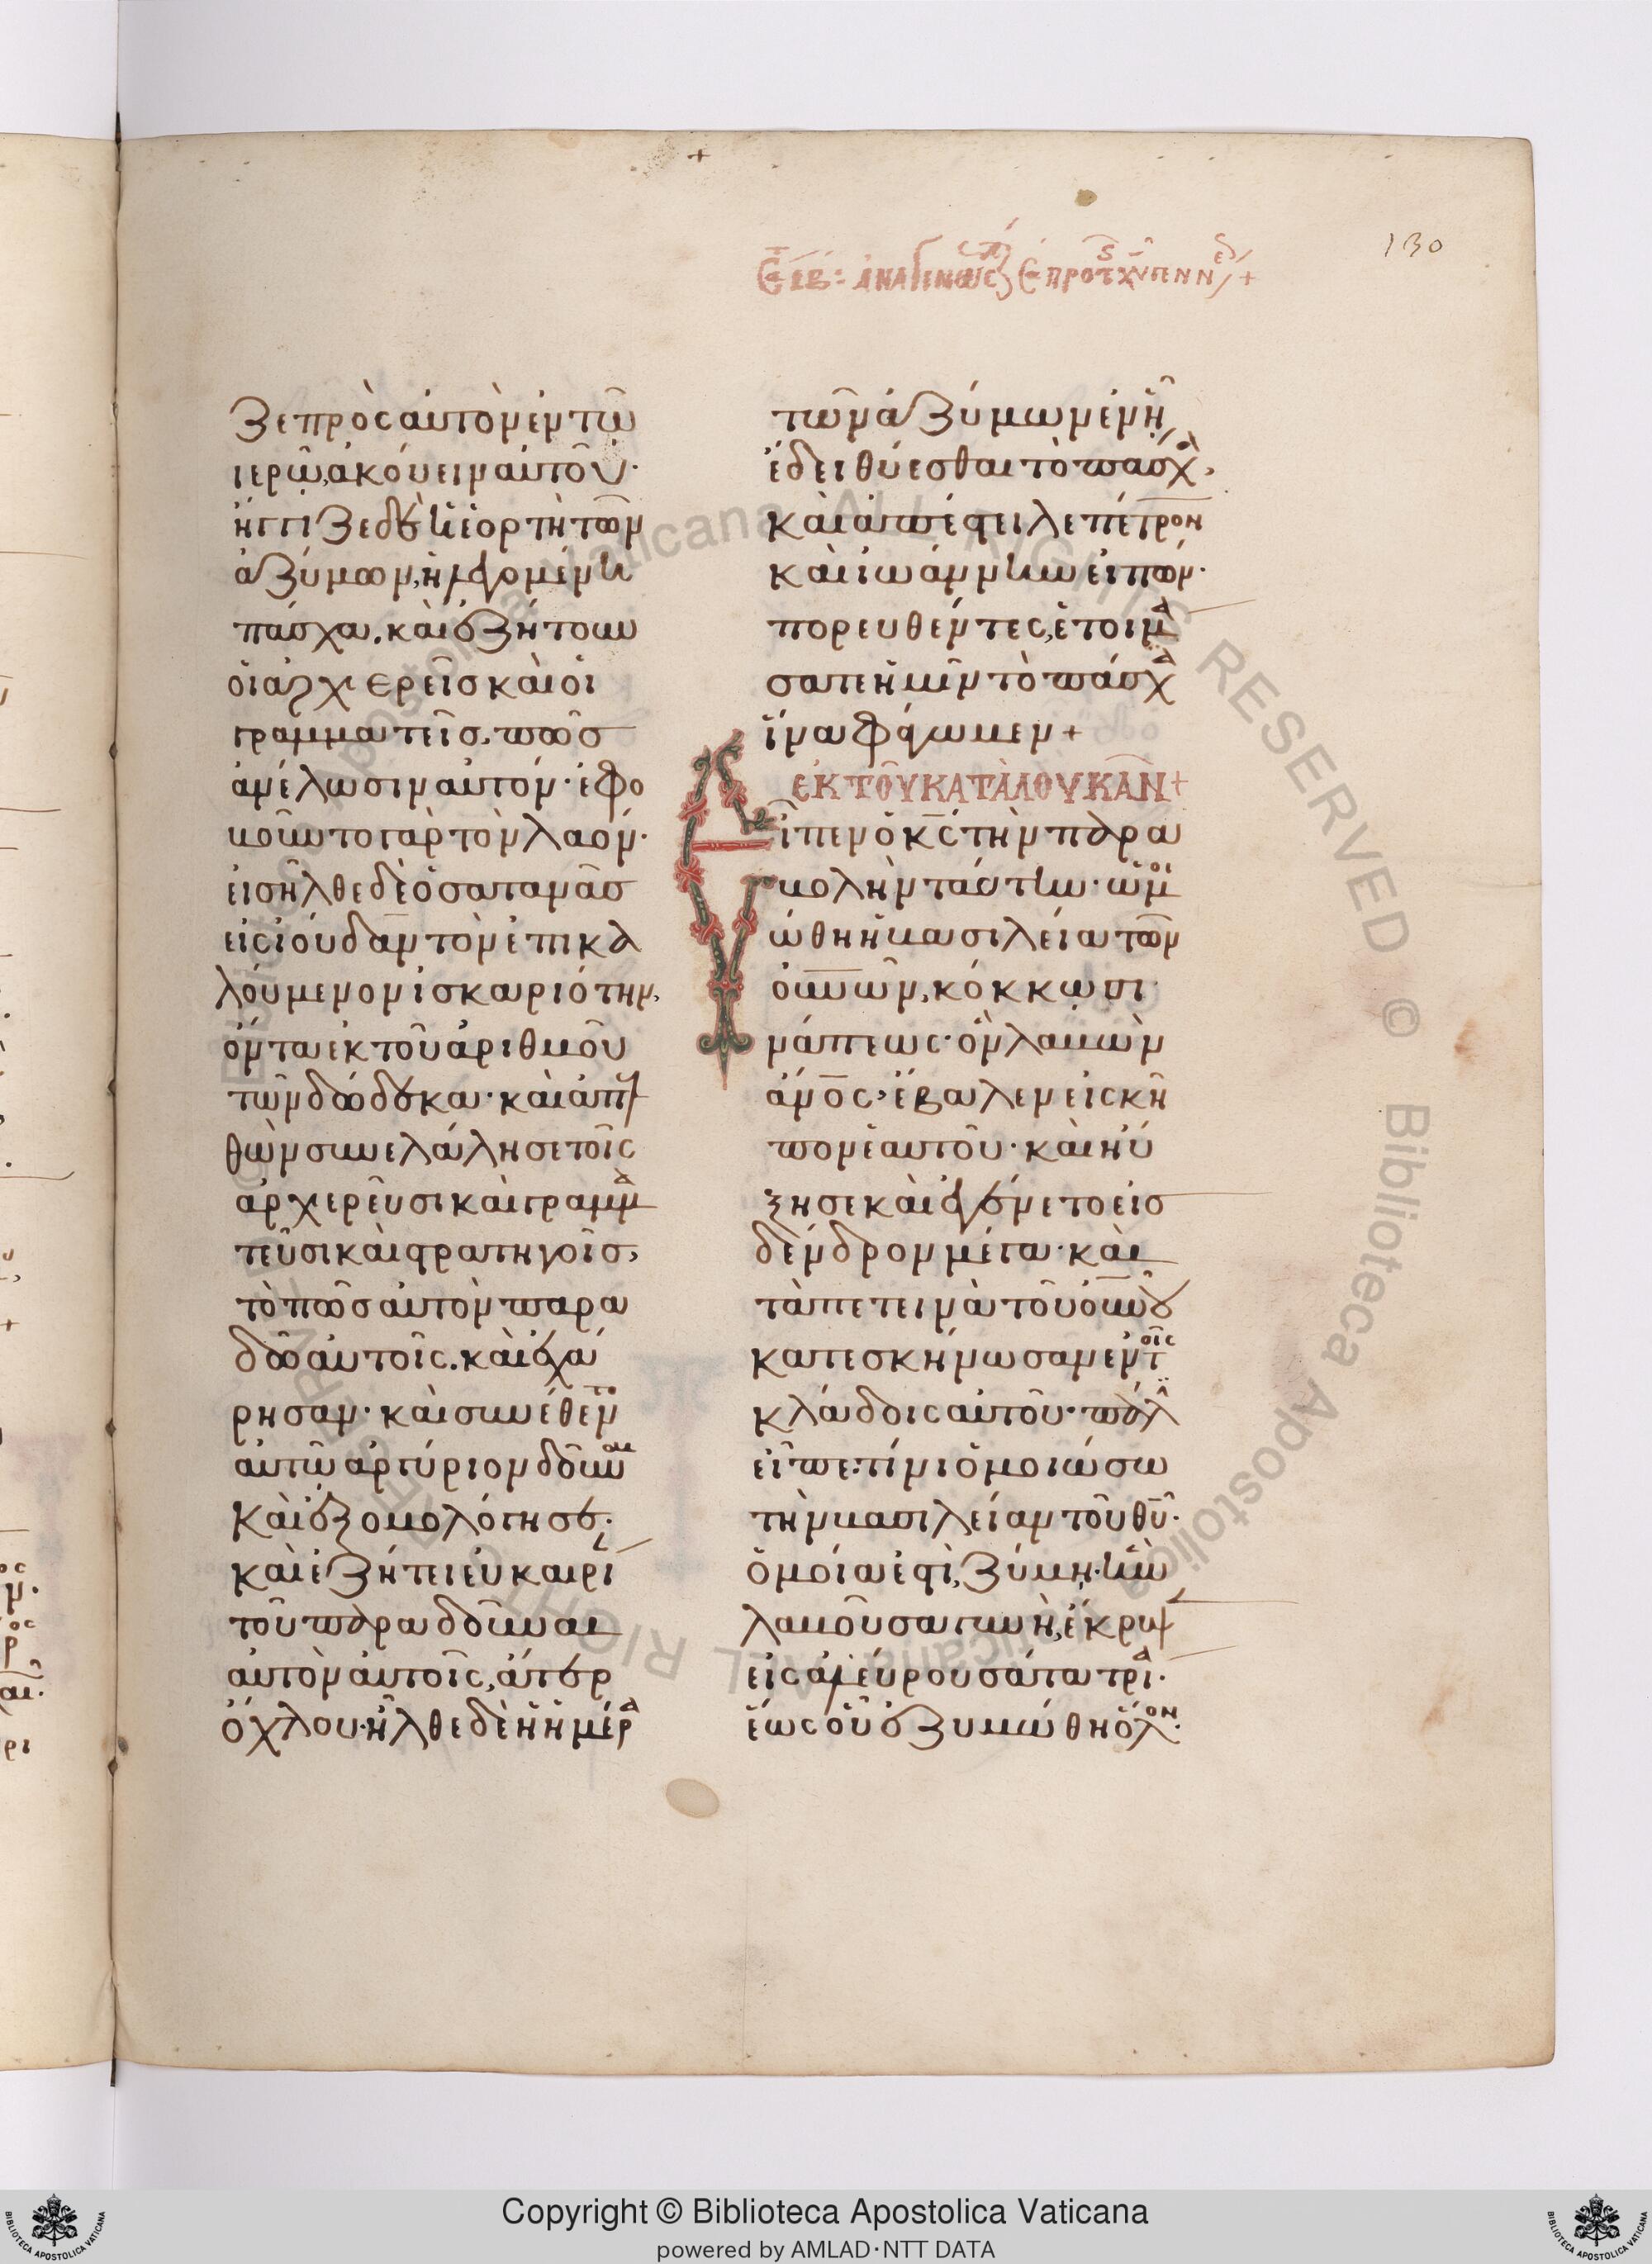 130
ζε πρὸς αὐτὸν ἐν τῶ
ιερῶ, ἀκούειν αὐτοῦ·
ἤγγιζε δὲ ἡ ἑορτὴ τῶν
ἀζύμων, ἡ λεγομένη
πάσχα. καὶ ἐζήτουν
οἱ ἀρχιερεῖς καὶ οἱ
γραμματεῖς, πῶς
ἀνέλωσιν αὐτόν· ἐφο
βοῦντο γὰρ τὸν λαόν·
εἰσῆλθε δὲ ὁ σατανᾶς
εἰς ἰούδαν τὸν ἐπικα
λούμενον ἰσκαριότην,
ὄντα ἐκ τοῦ ἀριθμοῦ
τῶν δώδεκα· καὶ ἀπελ
θὼν συνελάλησε τοῖς
ἀρχιερεῦσι καὶ γραμμα
τεῦσι καὶ στρατηγοῖς,
τὸ πῶς αὐτὸν παρα
δῶ αὐτοῖς. καὶ ἐχά
ρησαν· καὶ συνέθεντο
αὐτῶ ἀργύριον δοῦναι
καὶ ἐξομολόγησε·
καὶ ἐζήτει εὐκαιρί
τοῦ παραδοῦναι
αὐτὸν αὐτοῖς, ἄτερ
ὄχλου· ἦλθε δὲ ἡ ἡμέρα
τῶν ἀζύμων ἐν ῇ
ἔδει θύεσθαι τὸ πάσχα,
καὶ ἀπέστειλε πέτρον
καὶ ἰωάννην εἰπών·
πορευθέντες, ἑτοιμα
σατε ἡμῖν τὸ πάσχα
ἵνα φάγωμεν +
ἐκ τοῦ κατὰ λουκᾶν +
Εἶπεν ὁ κς τὴν παρα
βολὴν ταύτην· ὡμοι
ώθη ἡ βασιλεία τῶν
οὐνων, κόκκω σι
νάπεως· ὃν λαβὼν
ἀνος, ἔβαλεν εἰς κῆ
πον ἑαυτοῦ· καὶ ηὔ
ξησε καὶ ἐγένετο εἰς
δένδρον μέγα· καὶ
τὰ πετεινὰ τοῦ οὐνου
κατεσκήνωσαν ἐν τοῖς
κλάδοις αὐτοῦ· πάλ
εἶπε· τίνι ὁμοιώσω
τὴν βασιλείαν τοῦ θυ·
ὁμοία ἐστὶ, ζύμη· ἣν
λαβοῦσα γυνὴ, ἔκρυψ
εἰς ἀλεύρου σάτα τρία·
ἕως οὗ ἐζυμώθη ὅλον·
Copyright © Biblioteca Apostolica Vaticana
powered by AMLAD·NTT DATA